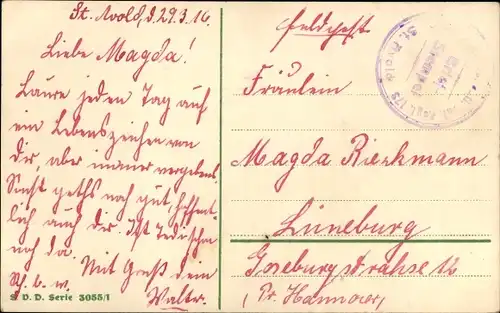 St. Avold, d. 29.3.16.
Liebe Magda!
Laure jeden Tag auf
ein Lebenszeichen von
dir, aber immer vergebens.
Sonst gehts noch gut, hoffent-
lich auch dir. Ist
noch da. Mit Gruß dein
B. b. w. Walter.
S.V.D. Serie 3055/1
Feldpost
Fräulein
Magda Rieckmann
Lüneburg
Goseburgstrahse 12
(Pr. Hannover)
St. Avold